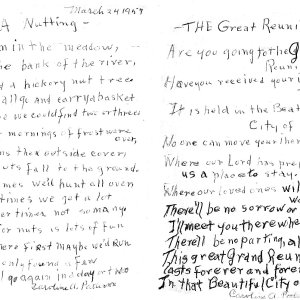 March 24 1957
A Nutting -
in the meadow,
the bank of the river,
a hickory nut tree
all go and carry a basket
we could find two or three
mornings of frost were
over,
outside cover,
nuts fall to the ground.
we'd hunt all over
times we got a lot
times not so many
nuts is lots of fun
first maybe we'd run
only found a few
go again in a day or two
Caroline A.
-THE Great Reuni
Are you going to the G
Reun
Have you received your i
It is held in the Beat
City of
No one can move your
Where our Lord has prep
us a place to stay.
Where our loved ones will
There'll be no sorrow or
I'll meet you there whe
There'll be no parting, al
This great Grand Reun
lasts forever and forev
In that Beautiful City o
Caroline A.